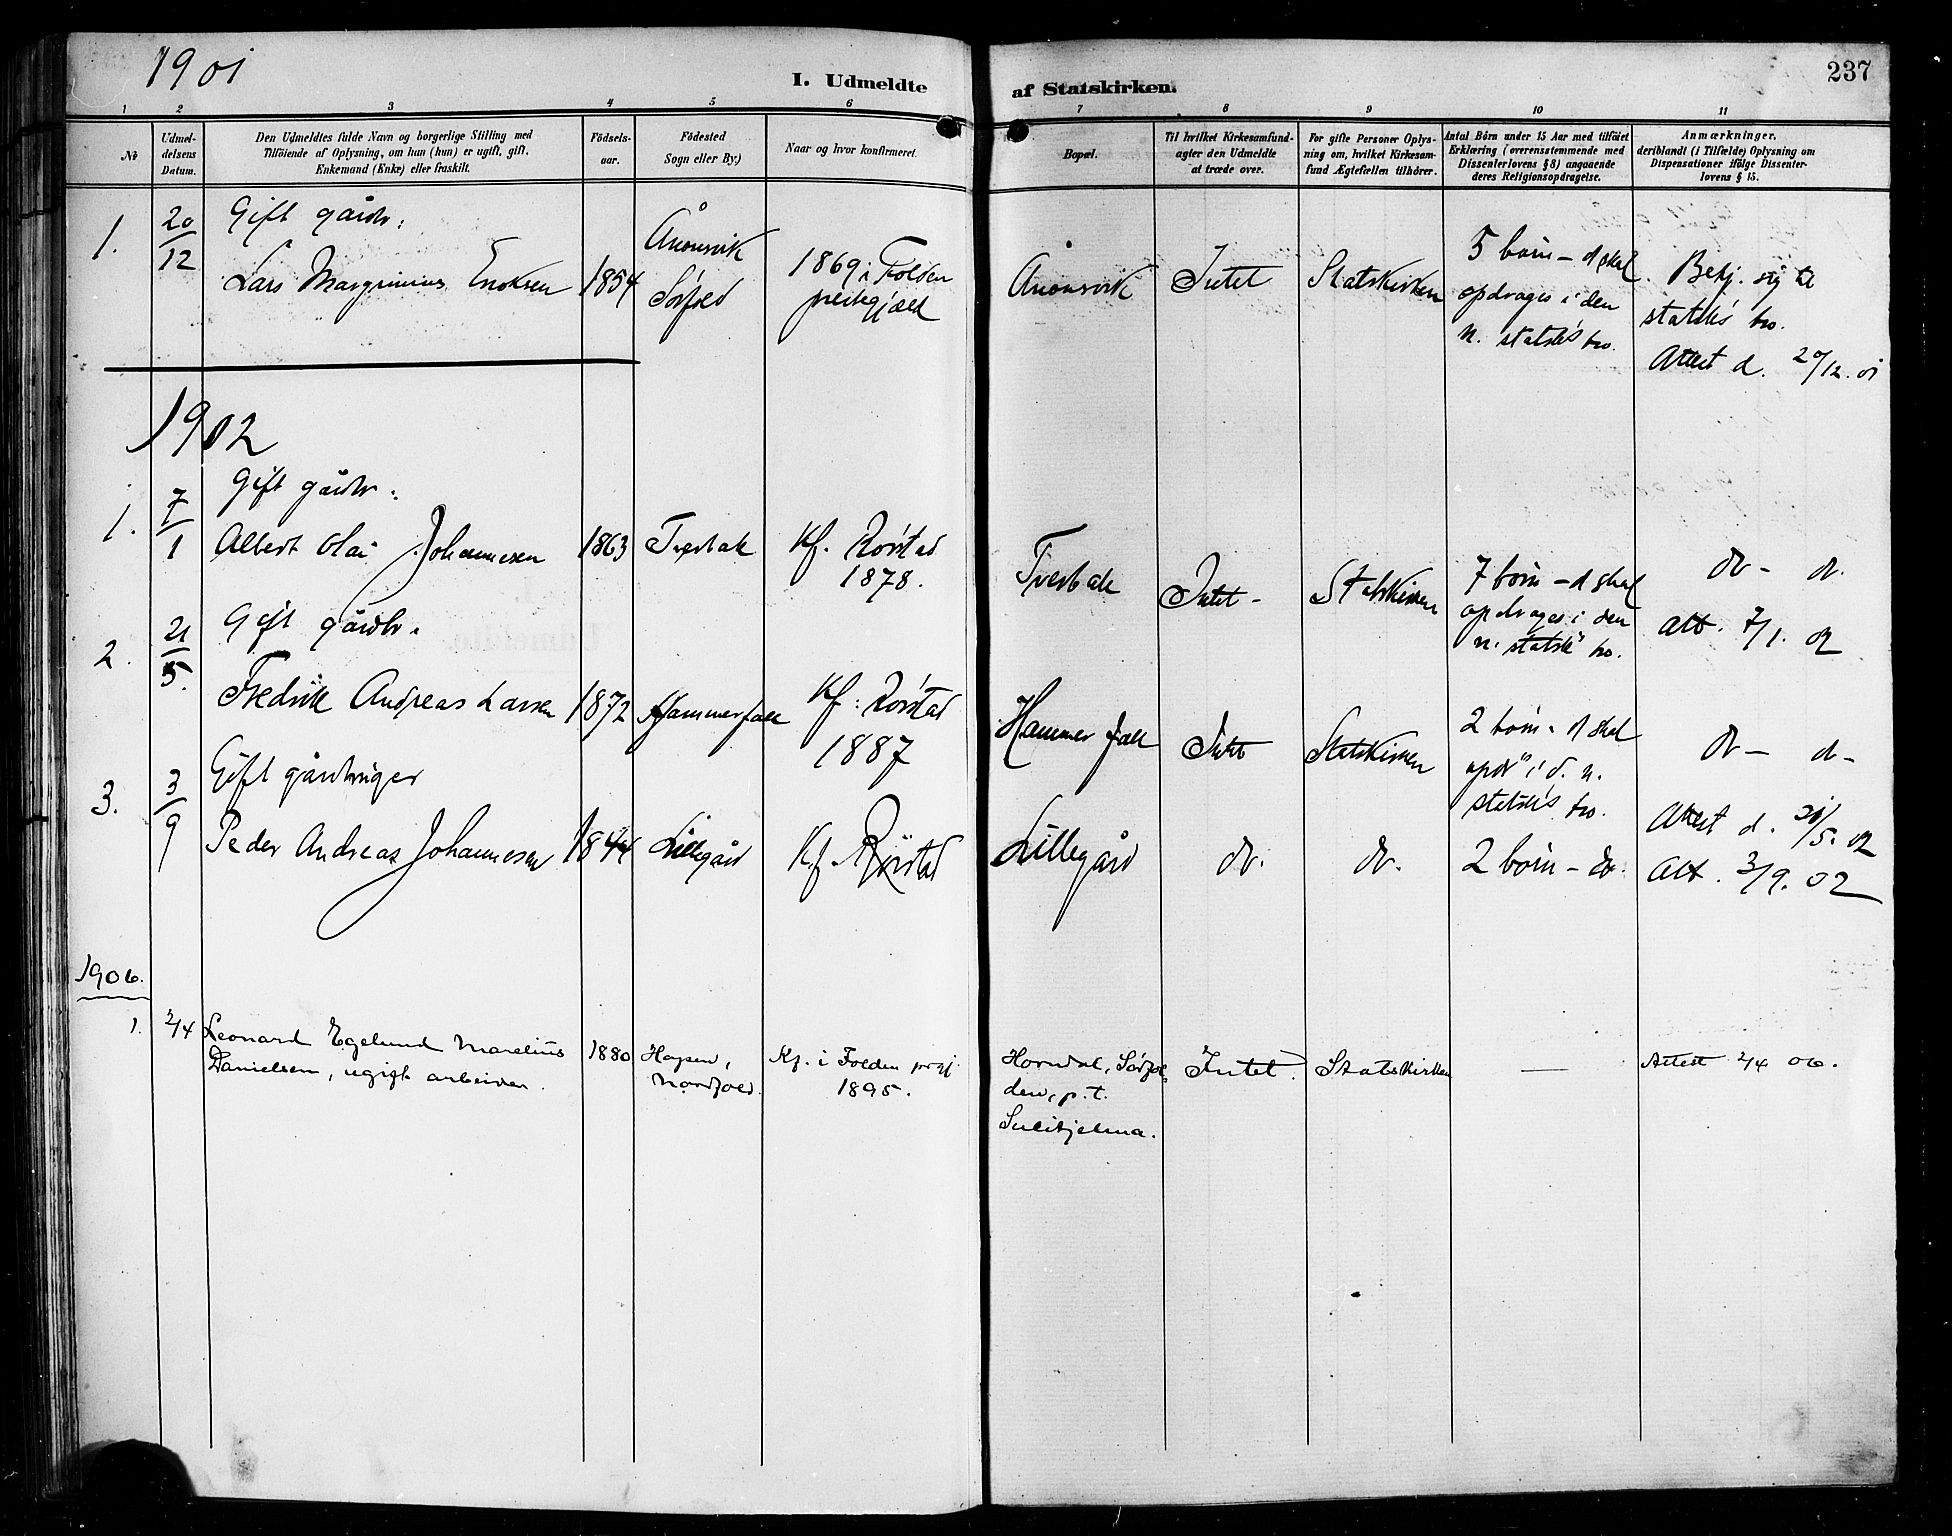 1901
I. Udmeldte af Statskirken.
237
1 2 3 4 5 6 7 8 9 10 11
No
Udmel-
delsens
Datum.
Den Udmeldtes fulde Navn og borgerlige Stilling med
Tilföiende af Oplysning, om han (hun) er ugift, gift,
Enkemand (Enke) eller fraskilt.
Födsels-
aar.
Födested
Sogn eller By.)
Naar og hvor konfirmeret.
Bopæl.
Til hvilket Kirkesamfund-
agter den Udmeldte
at træde over.
For gifte Personer Oplys-
ning om, hvilket Kirkesam-
fund Ægtefællen tilhörer.
Antal Börn under 15 Aar med tilföiet
Erklæring (overensstemmende med
Dissenterlovens § 8) angaaende
deres Religionsopdragelse.
Anmærkninger,
deriblandt (i Tilfælde) Oplysning om
Dispensationer ifölge Dissenter-
lovens § 15.
1. 20/12
Gift gårdbr:
Lars Marginius Enoksen
1854
Ånonsvik
Sørfold
1869 i Folden
prestegjæld
Ånonsvik
Intet
Statskirken
5 børn – d skal
opdrages i den
n. statsk's tro.
Bekj. sig til
statsk's tro.
Attest d. 20/12. 01
1902
1. 7/1
Gift gårdbr:
Albert Olai Johannesen
1863
Tverbak
Kf. Rørstad
1878.
Tverbak
Intet –
Statskirken
7 børn – d skal
opdrages i den
n. statsk" tro.
do – do.
Att. 7/1. 02
2. 21/5.
Gift gårdbr.
Fredrik Andreas Larsen
1872
Hammerfall
Kf: Rørstad
1887
Hammerfall
Intet
Statskirken
2 børn. d skal
opdr" i d. n.
statsk's tro.
do – d –
Attest d. 21/5. 02
3. 3/9
Gift gårdbruger
Peder Andreas Johannesen
1844
Lillegård
Kf. Rørstad
Lillegård
do.
do.
2 børn – do.
Att. 3/9. 02
1906.
1. 2/4
Leonard Egelund Marelius
Danielsen, ugift arbeider.
1880
Nordfold.
Kf. i Folden prgj.
1895.
Horndal, Sørfol-
den, p.t.
Sulitjelma.
Intet.
Statskirken
—
Attest 2/4 06.